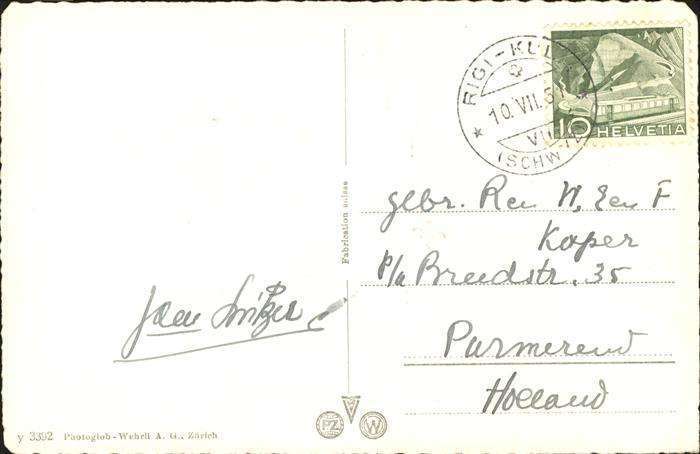 RIGI-KUL
10.VII.51
VII
(SCHW
10 HELVETIA
Fabrication suisse
gebr. Ren W, Een F
Koper
p/a Breedstr. 35
Purmerend
Holland
Jan Smitzer
PZ W
y 3392 Photoglob-Wehrli A. G., Zürich